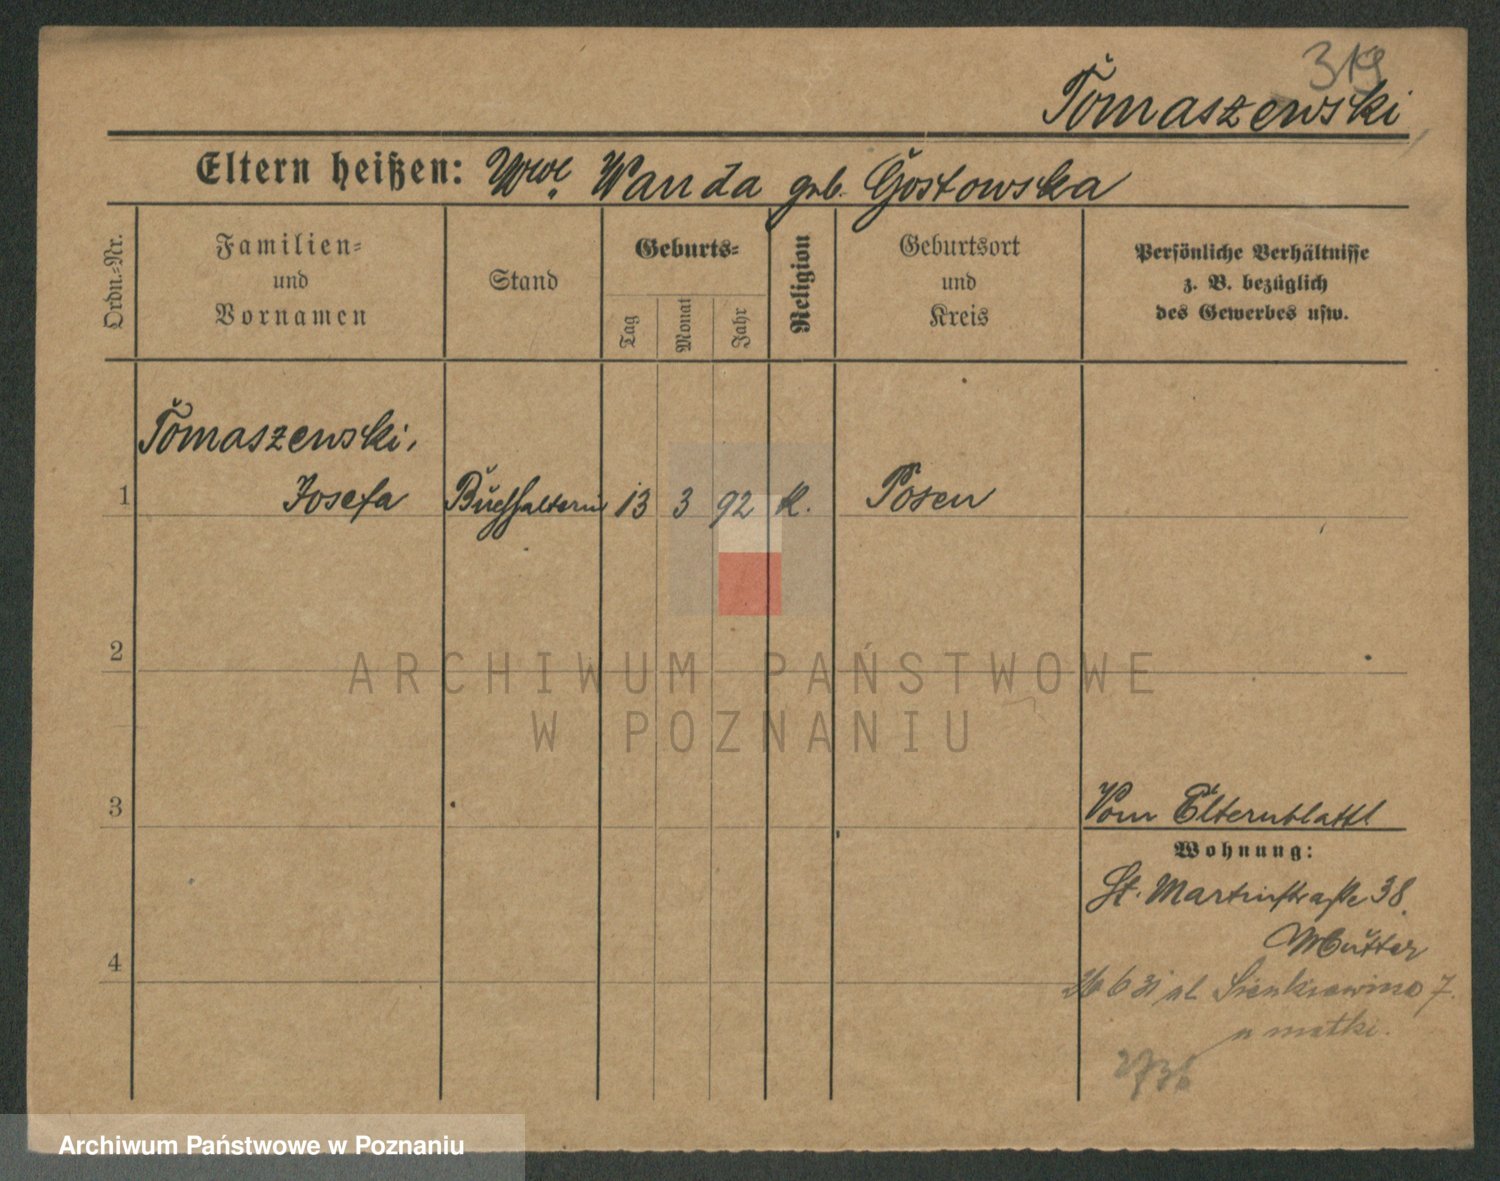 319
Tomaszewski
Eltern heißen: Wwe. Wanda geb. Gostowska
Ordn.-Nr.
Familien-
und
Vornamen
Stand
Geburts-
Tag
Monat
Jahr
Religion
Geburtsort
und
Kreis
Persönliche Verhältnisse
z. B. bezüglich
des Gewerbes usw.
Tomaszewski,
1 Josefa Buchhalterin 13 3 92 K. Posen
2
ARCHIWUM PAŃSTWOWE
W POZNANIU
3
Vom Elternblatt
Wohnung:
St. Martinstraße 38
Mutter
4
26 6 31 ul. Sienkiewicza 7.
u matki.
Archiwum Państwowe w Poznaniu